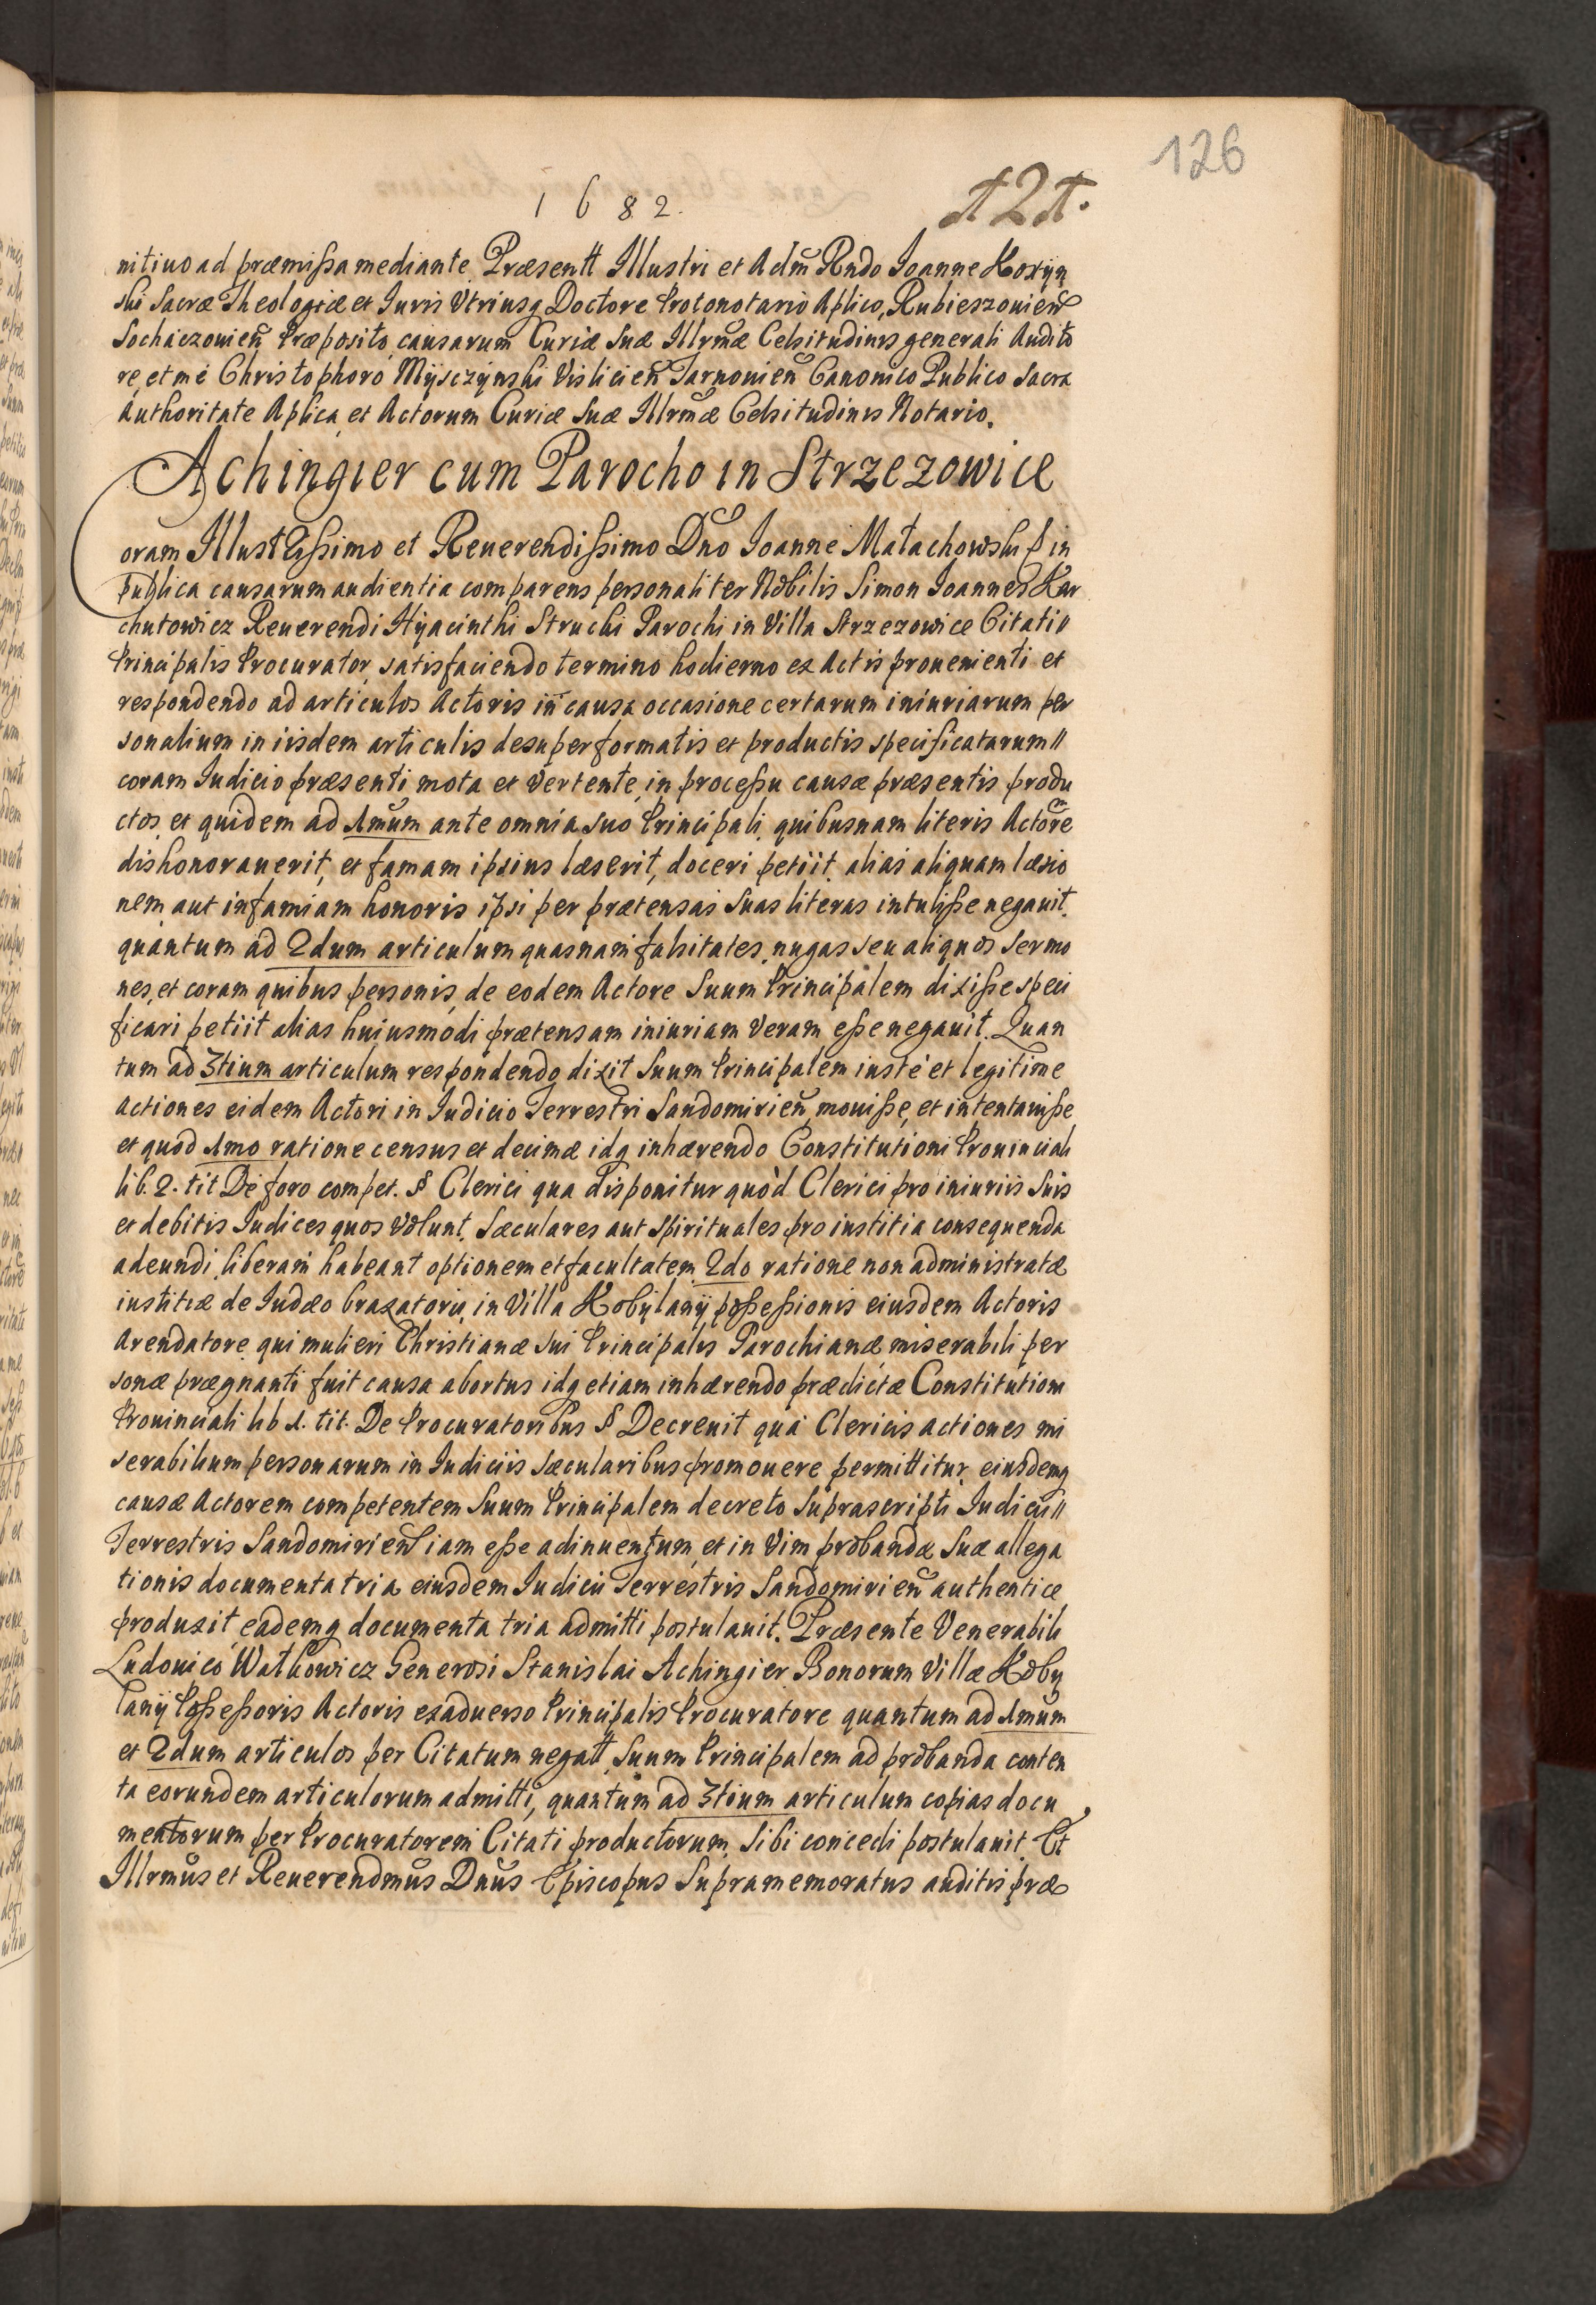 126
1682.
121.
nitiuo ad præmissa mediante Præsentt Illustri et Adm̃ Rndo Ioanne Koryn
ski Sacræ Theologiæ et Iuris Vtriusq Doctore Protonotario Aplico, Rubieszouien̄
Sochaczouien̄ Præposito, causarum Curiæ Suæ Illrmæ Celsitudinis generali Audito
re, et me Christophoro Mÿsczÿnski Vislicien̄ Tarnouien̄ Canonico Publico Sacra
Authoritate Aplica, et Actorum Curiæ Suæ Illrmæ Celsitudinis Notario.
Achingier cum Parocho in Strzezowice
Coram Illustrissimo et Reuerendissimo Dno Ioanne Małachowski p in
publica causarum audientia comparens personaliter Nobilis Simon Ioannes Kar
chutowicz Reuerendi Hÿacinthi Struchi Parochi in Villa Strzezowice Citati
Principalis Procurator, satisfaciendo termino hodierno ex Actis prouenienti et
respondendo ad articulos Actoris in causa occasione certarum iniuriarum per
sonalium in iisdem articulis desuper formatis et productis specificatarum //
coram Iudicio præsenti mota et vertente, in processu causæ præsentis produ
ctos, et quidem ad 1mum ante omnia suo Principali, quibusnam literis Actorē
dishonorauerit, et famam ipsius læserit, doceri petiit, alias aliquam læsio
nem aut infamiam honoris ipsi per prætensas Suas literas intulisse negauit.
quantum ad 2dum articulum quasnam falsitates, nugas seu aliquos sermo
nes, et coram quibus personis, de eodem Actore Suum Principalem dixisse speci
ficari petiit alias huiusmodi prætensam iniuriam Veram esse negauit. Quan
tum ad 3tium articulum respondendo dixit Suum Principalem iuste et legitime
actiones eidem Actori in Iudicio Terrestri Sandomirien̄ mouisse, et intentauisse
et quod 1mo ratione census et decimæ idq inhærendo Constitutioni Prouinciali
lib. 2. tit De foro compet. § Clerici qua disponitur quòd Clerici pro iniuriis Suis
et debitis Iudices quos Volunt, Sæculares aut Spirituales pro iustitia consequenda
adeundi, liberam habeant optionem et facultatem 2do ratione non administratæ
iustitiæ de Iudæo braxatorii in Villa Kobÿlanÿ possessionis eiusdem Actoris
Arendatore qui mulieri Christianæ Sui Principalis Parochianæ miserabili per
sonæ prægnanti fuit causa abortus idq etiam inhærendo prædictæ Constitutioni
Prouinciali lib 1. tit. De Procuratoribus § Decreuit qua Clericis actiones mi
serabilium personarum in Iudiciis sæcularibus promouere permittitur, eiusdemq
causæ Actorem competentem Suum Principalem decreto Suprascripti Iudicii //
Terrestris Sandomirien̄ iam esse adinuentum, et in Vim probandæ Suæ allega
tionis documenta tria eiusdem Iudicii Terrestris Sandomirien̄ authentice
produxit eademq documenta tria admitti postulauit. Præsente Venerabili
Ludouico Wathowicz Generosi Stanislai Achingier Bonorum Villæ Kobÿ
lanÿ Possessoris Actoris exaduerso Principalis Procuratore quantum ad 1mum
et 2dum articulos per Citatum negatt, Suum Principalem ad probanda conten
ta eorundem articulorum admitti, quantum ad 3tium articulum copias docu
mentorum per Procuratorem Citati productorum, Sibi concedi postulauit. Et
Illrmus et Reuerendmus Dnus Episcopus Supramemoratus auditis præ